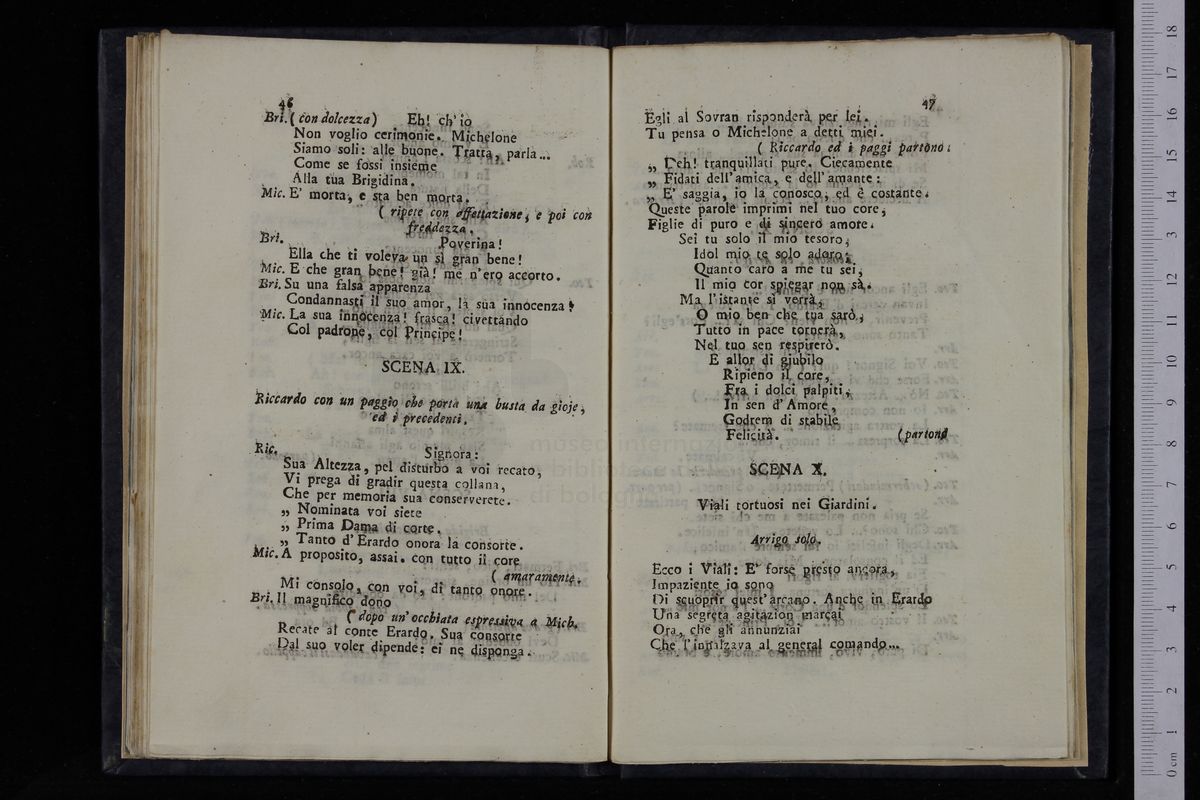 46
Bri. ( con dolcezza ) Eh! ch'io
Non voglio cerimonie. Michelone
Siamo soli: alle buone. Tratta, parla...
Come se fossi insieme
Alla tua Brigidina.
Mic. E' morta, e sta ben morta.
( ripete con affettazione, e poi con
freddezza.
Bri. Poverina!
Ella che ti voleva un sì gran bene!
Mic. E che gran bene! già! me n'ero accorto.
Bri. Su una falsa apparenza
Condannasti il suo amor, la sua innocenza!
Mic. La sua innocenza! frasca! civettando
Col padrone, col Principe!
SCENA IX.
Riccardo con un paggio che porta una busta da gioje,
ed i precedenti.
Ric. Signora:
Sua Altezza, pel disturbo a voi recato,
Vi prega di gradir questa collana,
Che per memoria sua conserverete.
„ Nominata voi siete
„ Prima Dama di corte.
„ Tanto d'Erardo onora la consorte.
Mic. A proposito, assai. con tutto il core
( amaramente.
Mi consolo, con voi, di tanto onore.
Bri. Il magnifico dono
( dopo un'occhiata espressiva a Mich.
Recate al conte Erardo. Sua consorte
Dal suo voler dipende: ei ne disponga.
47
Egli al Sovran risponderà per lei.
Tu pensa o Michelone a detti miei.
( Riccardo ed i paggi partono.
„ Deh! tranquillati pure. Ciecamente
„ Fidati dell'amica, e dell'amante:
„ E' saggia, io la conosco, ed è costante.
Queste parole imprimi nel tuo core,
Figlie di puro e di sincero amore.
Sei tu solo il mio tesoro,
Idol mio te solo adoro;
Quanto caro a me tu sei,
Il mio cor spiegar non sà.
Ma l'istante si verrà,
O mio ben che tua sarò,
Tutto in pace tornerà,
Nel tuo sen respirerò.
E allor di giubilo
Ripieno il core,
Fra i dolci palpiti,
In sen d'Amore,
Godrem di stabile
Felicità. (partono
SCENA X.
Viali tortuosi nei Giardini.
Arrigo solo.
Ecco i Viali: E' forse presto ancora,
Impaziente io sono
Di scuoprir quest'arcano. Anche in Erardo
Una segreta agitazion marcai
Ora, che gli annunziai
Che l'innalzava al general comando...
museo internaz
biblioteca
di bologna